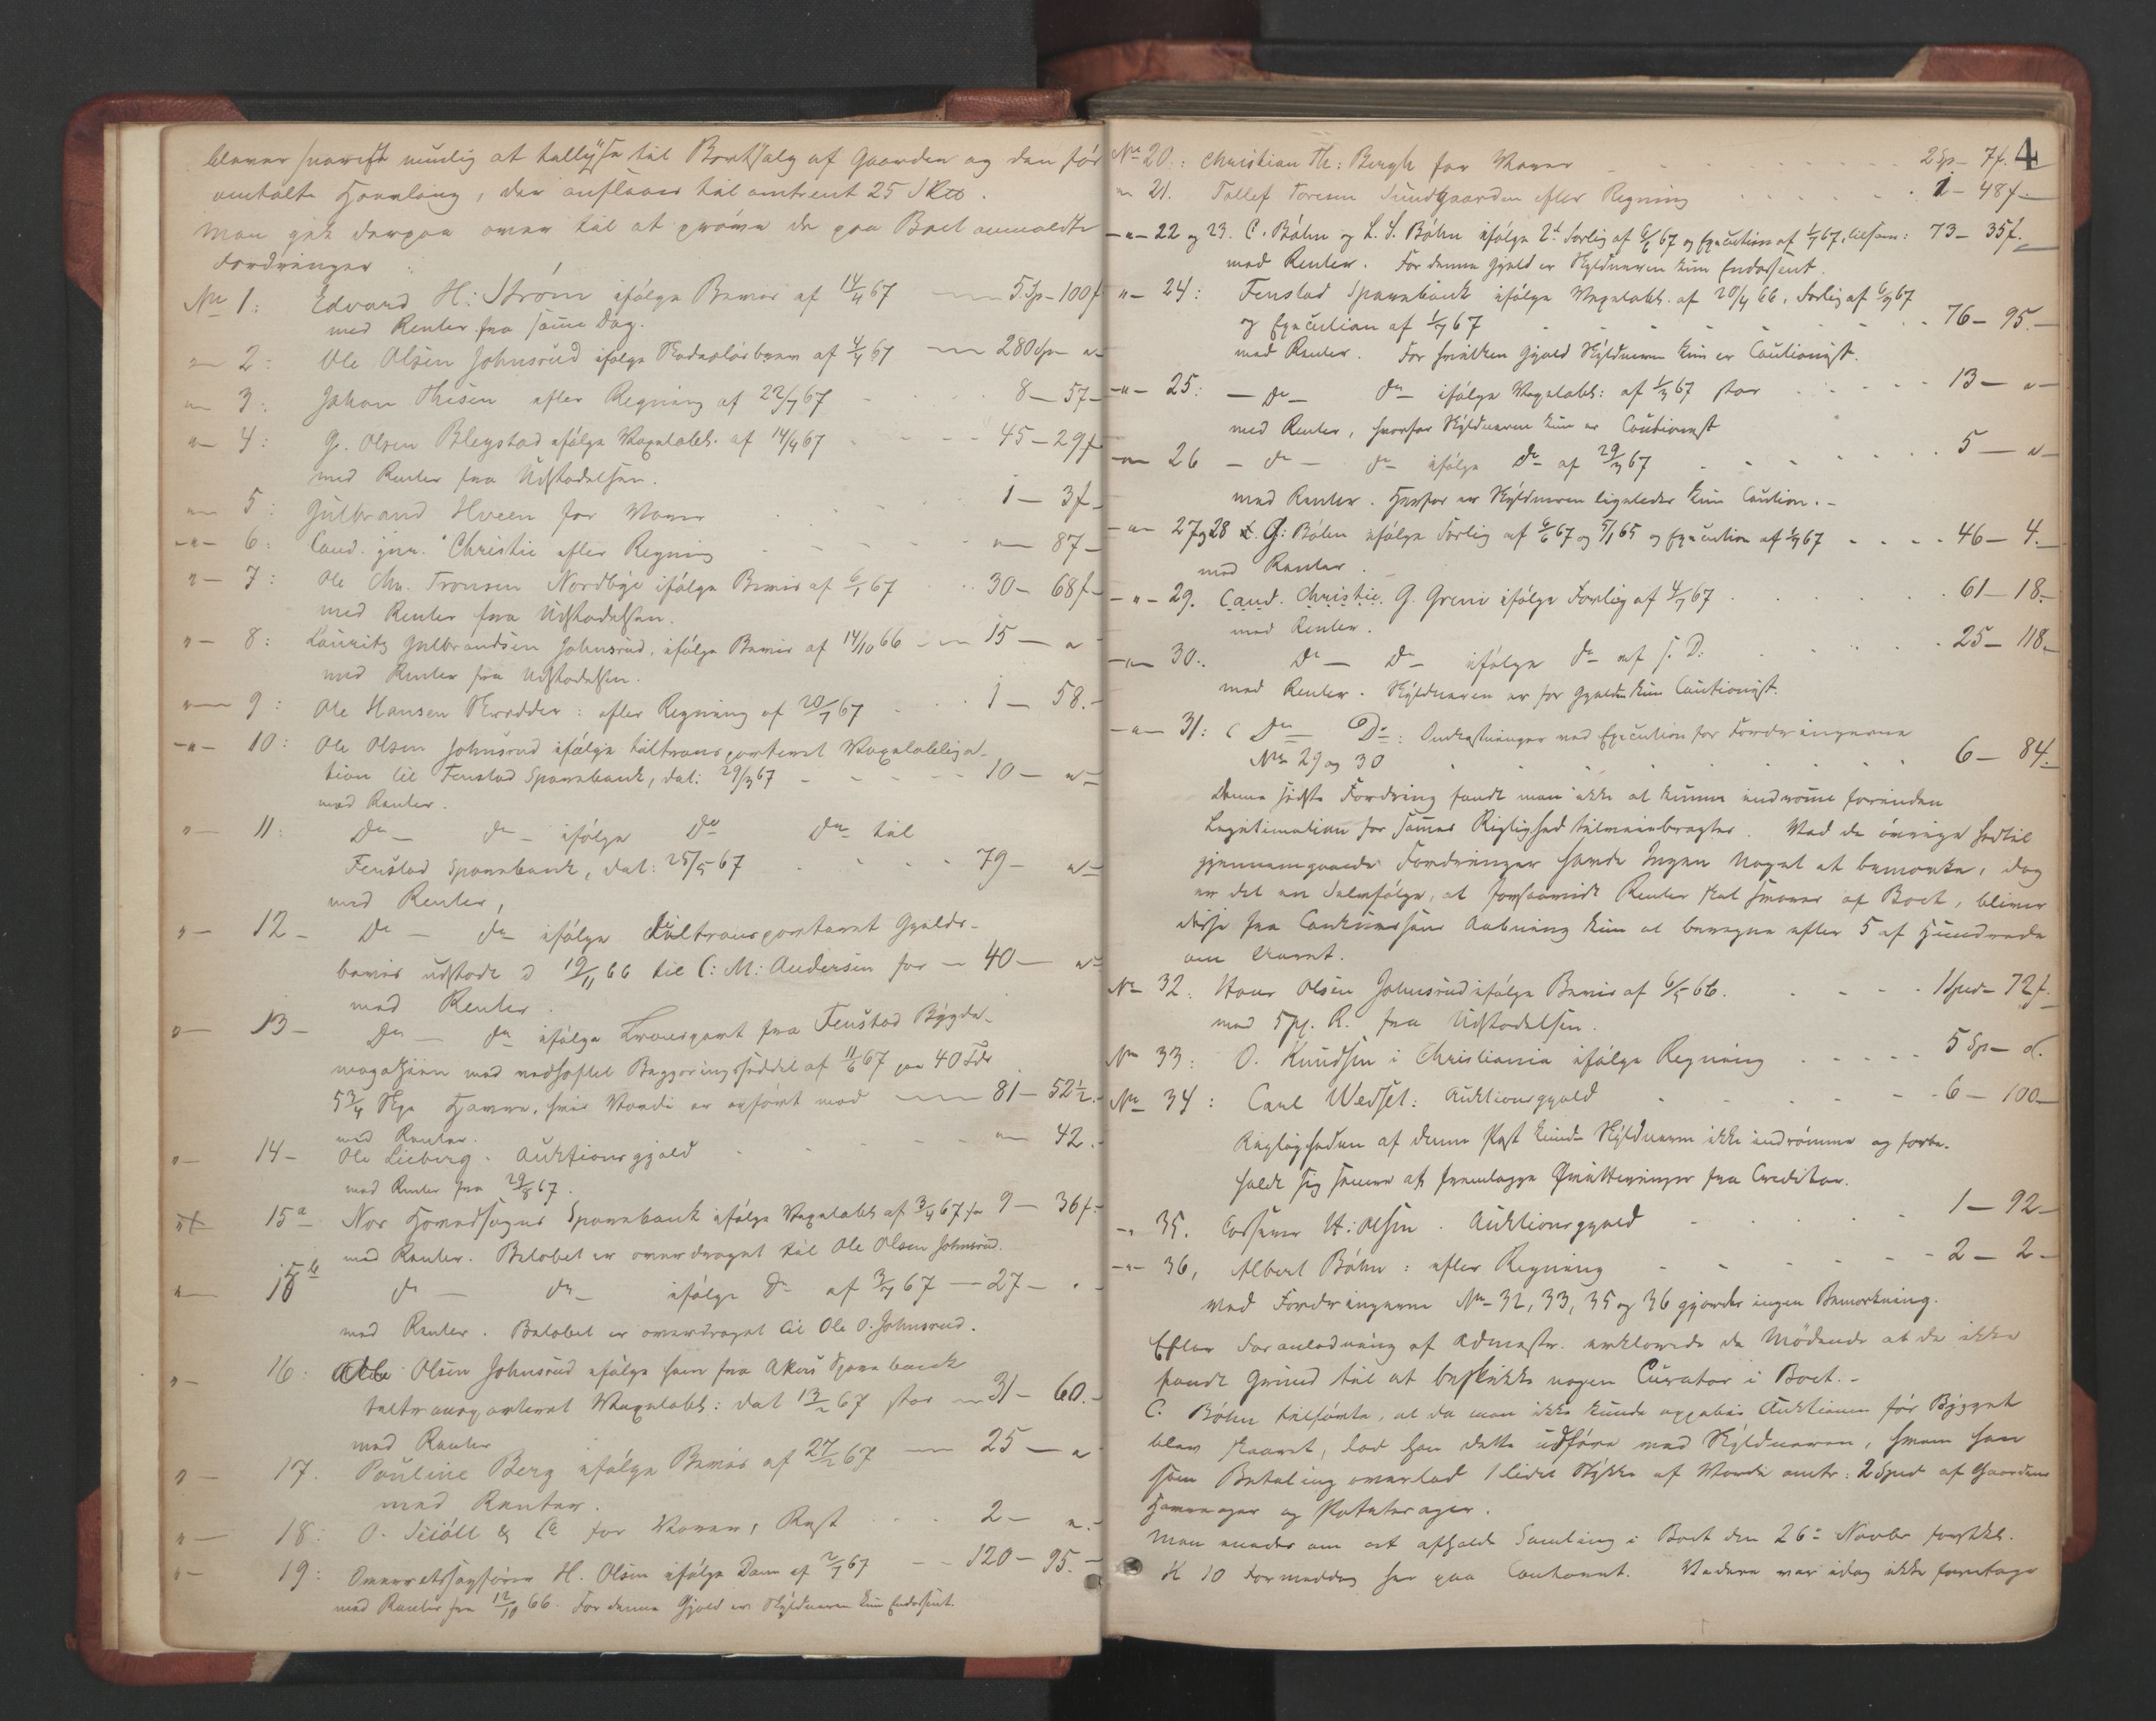 bliver snarest muelig at tillyse til Bortsalg af Gaarden og den før
omtalte Havnling, der ansloges til omtrent 25
Man gik derpaa over til at prøve de paa Boet anmeldte
Fordringer:
No 1: Edvard H: Strøm ifølge Beviis af 14/4 67 — 5 Sp - 100 f
med Renter fra samme Dag.
" 2: Ole Olsen Johnsrud ifølge Skadesløsbrev af 4/4 67 — 280 Spd "
" 3: Johan Thisen efter Regning af 22/7 67 8 - 57 -
" 4: G. Olsen Blegstad ifølge Vexelobl. af 14/4 67 45 - 29 f
med Renter fra Udstedelsen.
" 5: Gulbrand Hveen for Varer 1 - 3 f
-"- 6: Cand. jur. Christie efter Regning " - 87 -
" - 7: Ole Chr. Tronsen Nordbye ifølge Beviis af 6/1 67 30 - 68 f
med Renter fra Udstedelsen.
" - 8: Lauritz Gulbrandsen Johnsrud, ifølge Beviis af 14/10 66 - 15 - "
med Renter fra Udstedelsen.
" - 9: Ole Hansen Skrædder: efter Regning af 20/7 67 1 - 58. -
-"- 10: Ole Olsen Johnsrud ifølge tiltransporteret Vexelobliga-
tion til Fenstad Sparebank, dat: 29/3 67 - 10 - "
med Renter.
" - 11: Do - do - ifølge Do do til
Fenstad Sparebank, dat: 25/5 67 79 - "
med Renter,
" - 12 - Do - do ifølge tiltransporteret Gjelds-
beviis udstedt d 19/11 66 til C: M: Andersen for - 40 - "
med Renter.
" - 13 - Do - do ifølge Transport fra Fenstad Bygde-
magazin med vedheftet Byggeringsseddel af 11/6 67 paa 40 Tdr
5 3/4 Skp Havre, hvis Værdi er opført med — 81 - 52 1/2 -
med Renter.
" - 14 - Ole Lieberg. Auktionsgjeld " 42. -
med Renter fra 29/8 67.
" 15a Nor Hovedsogns Sparebank ifølge Vexelobl af 3/4 67 for 9 - 36 f. -
med Renter. Beløbet er overdraget til Ole Olsen Johnsrud.
" 15b do - do - ifølge Do af 3/7 67 - 27 - "
med Renter. Beløbet er overdraget til Ole O. Johnsrud.
" - 16: Ole Olsen Johnsrud ifølge ham fra Akers Sparebank
tiltransporteret Vexelobl: dat 13/2 67 stor — 31 - 60. -
med Renter
" - 17. Pauline Berg ifølge Beviis af 27/2 67 — 25 - "
med Renter.
" - 18: O. Sciøll & Co for Varer, Rest 2 - ". -
" - 19: Overretssagfører H. Olsen ifølge Dom af 2/7 67 - - 120 - 95. -
med Renter fra 12/10 66. For denne Gjeld er Skyldneren kun Endossent.
4
No 20: Christian Th: Bergh for Varer 2 Sp - 7 f.
" 21. Tollef Toresen Sundgaarden efter Regning 1 - 48 f -
-"- 22 og 23. C. Bøhn og L. S. Bøhn ifølge 2de Forlig af 6/6 67 og Execution af 1/7 67, tilsam: 73 - 35 f.
med Renter. For denne Gjeld er Skyldneren kun Endossent.
"- 24: Fenstad Sparebank ifølge Vexelobl. af 20/4 66, Forlig af 6/3 67
og Execution af 1/7 67 76 - 95. -
med Renter. For hvilken Gjeld Skyldneren kun er Cautionist.
-"- 25: - Do - do - ifølge Vexelobl: af 1/3 67 stor 13 - " -
med Renter, hvorfor Skyldneren kun er Cautionist
-"- 26 - do - do - ifølge Do af 29/3 67 5 - " -
med Renter. Herfor er Skyldneren ligeledes kun Caution. -
-"- 27 og 28 G: Bøhn ifølge Forlig af 6/6 67 og 5/1 65 og Execution af 1/7 67 46 - 4. -
med Renter.
-"- 29. Cand. Christie. G. Greni ifølge Forlig af 4/7 67 61 - 18. -
med Renter.
-"- 30. Do - Do - ifølge do af s. D: 25 - 118 -
med Renter. Skyldneren er for Gjelden kun Cautionist.
-"- 31: Do - Do: Omkostninger ved Execution for Fordringerne
No 29 og 30 6 - 84. -
Denne sidste Fordring fandt man ikke at kunne indrømme forinden
Legitimation for sammes Rigtighed tilveiebragtes. Ved de øvrige hidtil
gjennemgaaede Fordringer havde Ingen Noget at bemærke, dog
er det en Selvfølge, at forsaavidt Renter skal svares af Boet, bliver
disse fra Concursens Aabning kun at beregne efter 5 af Hundrede
om Aaret.
No 32. Hans Olsen Johnsrud ifølge Beviis af 6/5 66. 1 Spd - 72 f.
med 5 pC. R. fra Udstedelsen.
No 33: O. Knudsen i Christiania ifølge Regning 5 Sp - ".
No 34: Carl Wedset: Auktionsgjeld 6 - 100 -
Rigtigheden af denne Post kunde Skyldneren ikke indrømme og forbe-
holdt sig senere at fremlægge Qvitteringer fra Creditor.
-" 35. H: Olsen. Auktionsgjeld 1 - 92 -
-"- 36, Albert Bøhn: efter Regning 2 - 2 -
Ved Fordringerne No 32, 33, 35 og 36 gjordes ingen Bemærkning.
Efter Foranledning af Admstr. erklærede de Mødende at de ikke
fandt Grund til at beskikke nogen Curator i Boet. -
C. Bøhn tilførte, at da man ikke kunde opsætte Auktionen før Bygget
blev skaaret, lod han dette udføre med Skyldneren, hvem han
som Betaling overlod 1 lidet Stykke af Værdi omtr: 2 Spd af Gaardens
Havreager og Potetesager.
Man enedes om at afholde Samling i Boet den 26de Novbr førstk.
Kl 10 Formiddag her paa Contoret. Videre var idag ikke foretage